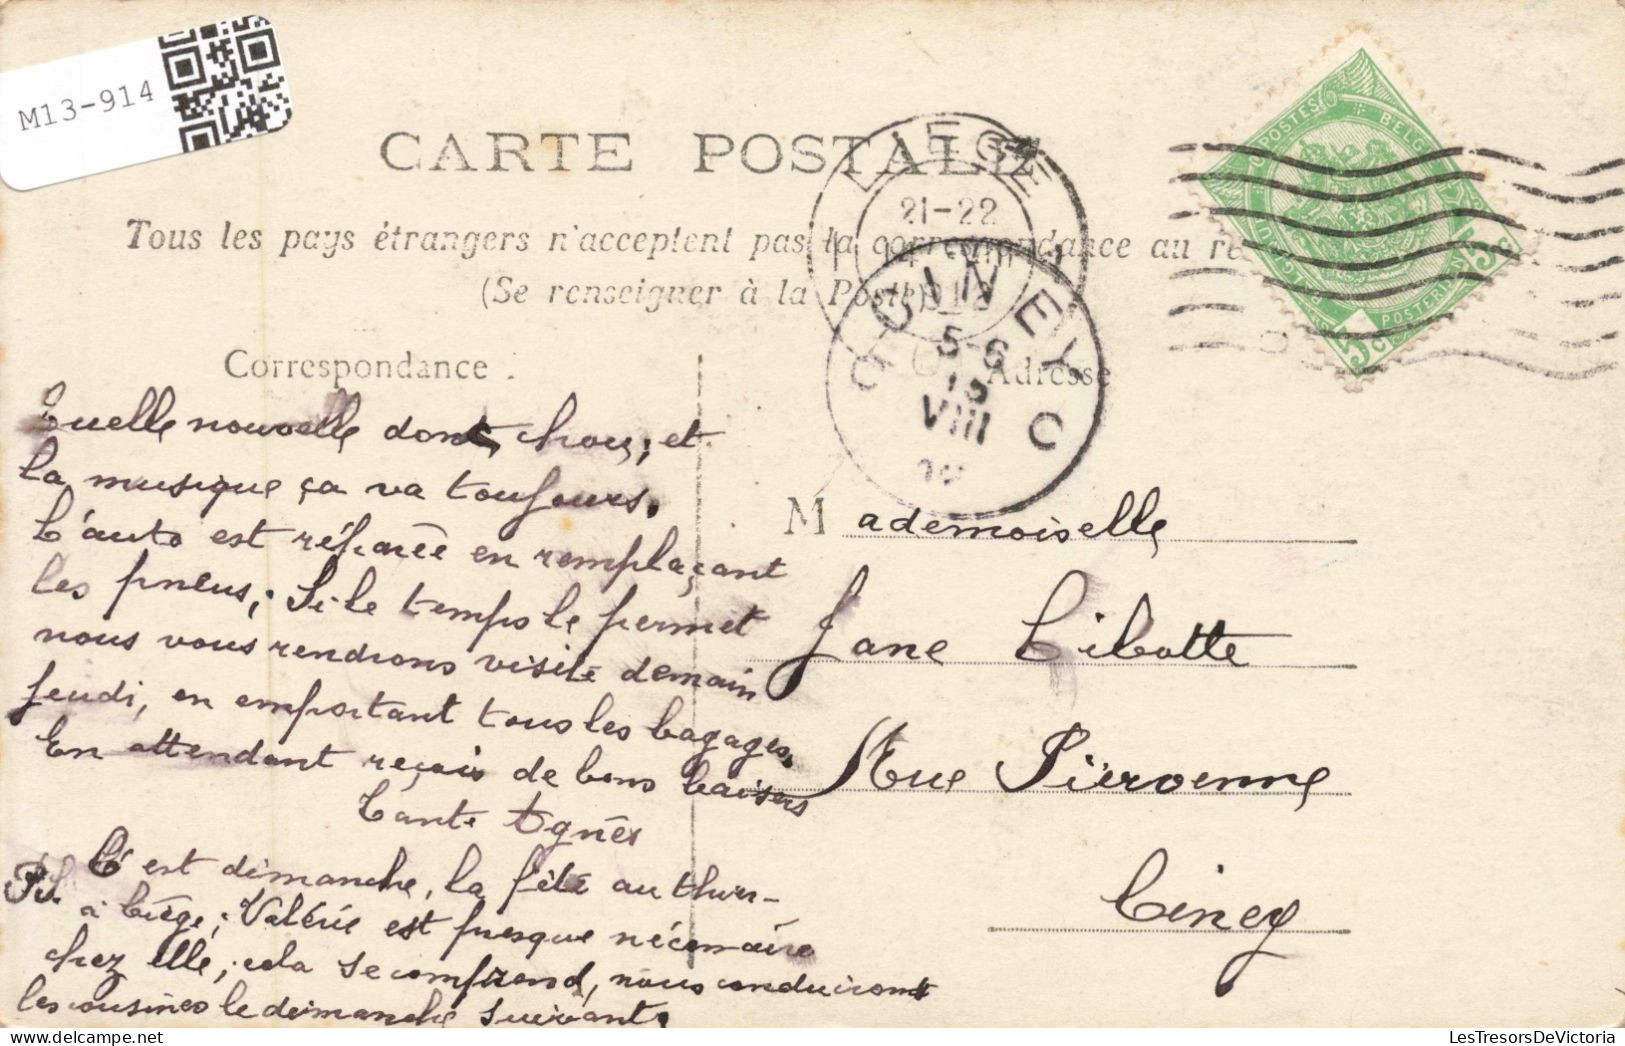 M13-914
CARTE POSTALE
Tous les pays étrangers n'acceptent pas la correspondance au re
(Se renseigner à la Poste)
LIEGE
21-22
CINEY
5-6
15
VIII
C
POSTES BELG
5c POSTERIJEN 5c
Correspondance.
Adresse
Quelle nouvelle dont, chou; et
la musique ça va toujours.
L'auto est réparée en remplaçant
les pneus; Si le temps le permet
nous vous rendrons visite demain
jeudi, en emportant tous les bagages.
En attendant reçois de bons baisers
Tante Agnès
Ps. C'est dimanche, la fête au thier-
à Liège; Valérie est presque nécessaire
chez elle; cela se comprend, nous conduirons
les cousines le dimanche suivant.
Mademoiselle
Jane Libotte
Rue Piervenne
Ciney
LesTresorsDeVictoria